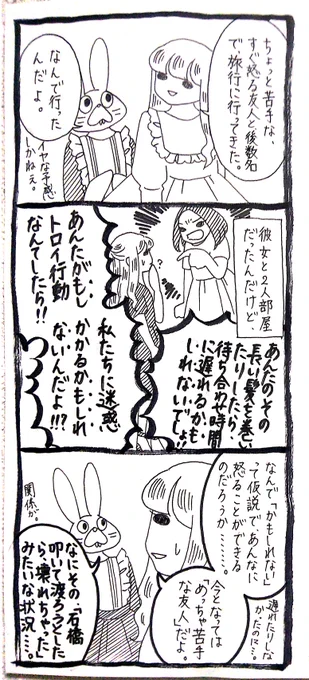 ちょっと苦手な、
すぐ怒る友人と後数名
で、旅行に行ってきた。
なんで行った
んだよ。
イヤな予感
しかねぇ。
彼女と2人部屋
だったんだけど、
あんたのその
長い髪を巻い
たりしたら、
待ち合わせ時間
に遅れるかも
しれないでしょ
?
あんたがもし
トロイ行動
なんてしたら!!
私たちに迷惑
かかるかもしれ
ないんだよ!!?
なんで「かもしれない」
って仮説で、あんなに
怒ることができる
のだろうか……。
遅れたりしな
かったのに…。
今となっては
「めっちゃ苦手
な友人」だよ。
関係が。
なにその、「石橋
叩いて渡ろうとした
ら、壊れちゃった」
みたいな状況…。